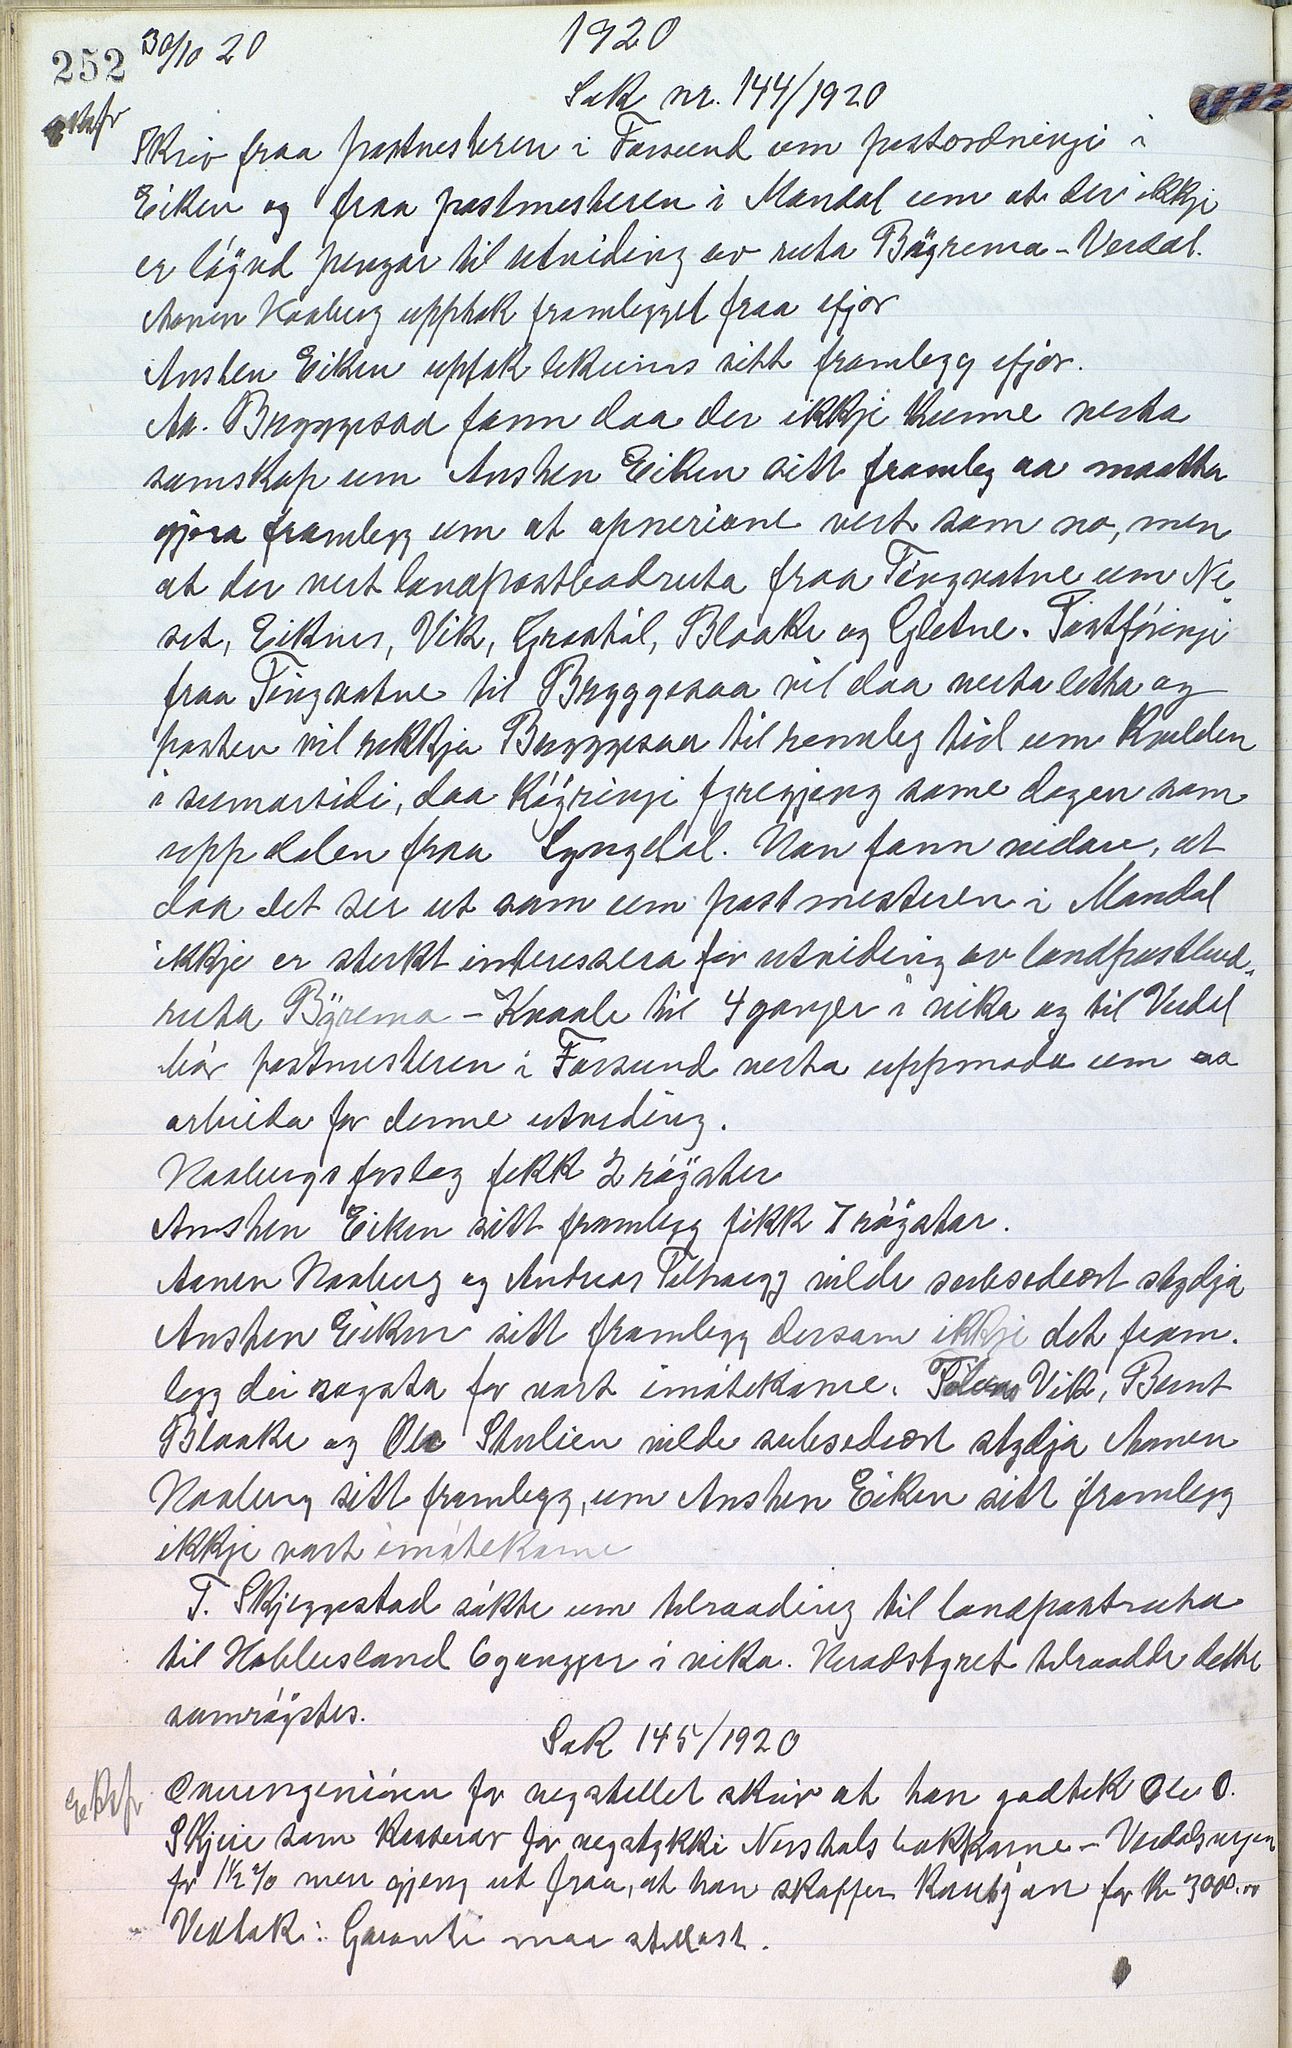 252
30/10 20
1920
Sak nr. 144/1920
Skriv fraa postmesteren i Farsund um postordningi i
Eiken og fraa postmesteren i Mandal um at der ikkje
er löyvd pengar til utviding av ruta Böyrema - Verdal.
Aanen Kaaberg upptok framlegget fraa ifjor
Ansten Eiken uptok likeeins sitt framlegg ifjor.
Aa. Bryggesaa fann daa der ikkje kunne verta
samskap um Ansten Eiken sitt framleg aa maatta
gjöra framlegg um at apneriane vert som no, men
at der vert landpostbodruta fraa Tingvatne um Ne-
set, Eiknes, Vik, Graatål, Blaake og Gletne. Postföringi
fraa Tingvatne til Bryggesaa vil daa verta letta og
posten vil rekkja Bryggesaa til rimeleg tid um kvelden
i sumartidi, daa köyringi fyregjeng same dagen som
upp dalen fraa Lyngdal. Han fann vidare, at
daa det ser ut som um postmesteren i Mandal
ikkje er sterkt interessera for utviding av landpostbud-
ruta Böyrema - Knaale til 4 gonger i vika og til Verdal
bör postmesteren i Farsund verta uppmoda um aa
arbeida for denne utviding.
Kaabergs forslag fekk 2 röyster
Ansten Eiken sitt framlegg fikk 7 röystar.
Aanen Kaaberg og Andreas Teltvegg vilde subsediert stydja
Ansten Eiken sitt framlegg dersom ikkje det fram-
legg dei röysta for vart imötekome. Vik, Bernt
Blaake og Ola Stulien vilde subsediert stydja Aanen
Kaaberg sitt framlegg, um Ansten Eiken sitt framlegg
ikkje vart imötekome
T. Skjeggestad sökte um tilraading til landpostruta
til Kobbesland 6 gonger i vika. Heradstyret tilraadde dette
samröystes.
Sak 145/1920
Overingeniören for vegstellet skriv at han godtek Ole O.
Skjeie som kasserar for vegstykki Nershals bakkane - Verdalsvegen
for 1½ % men gjeng ut fraa, at han skaffer kausjon for kr 3000.00
Vedtak: Garanti maa stellast.